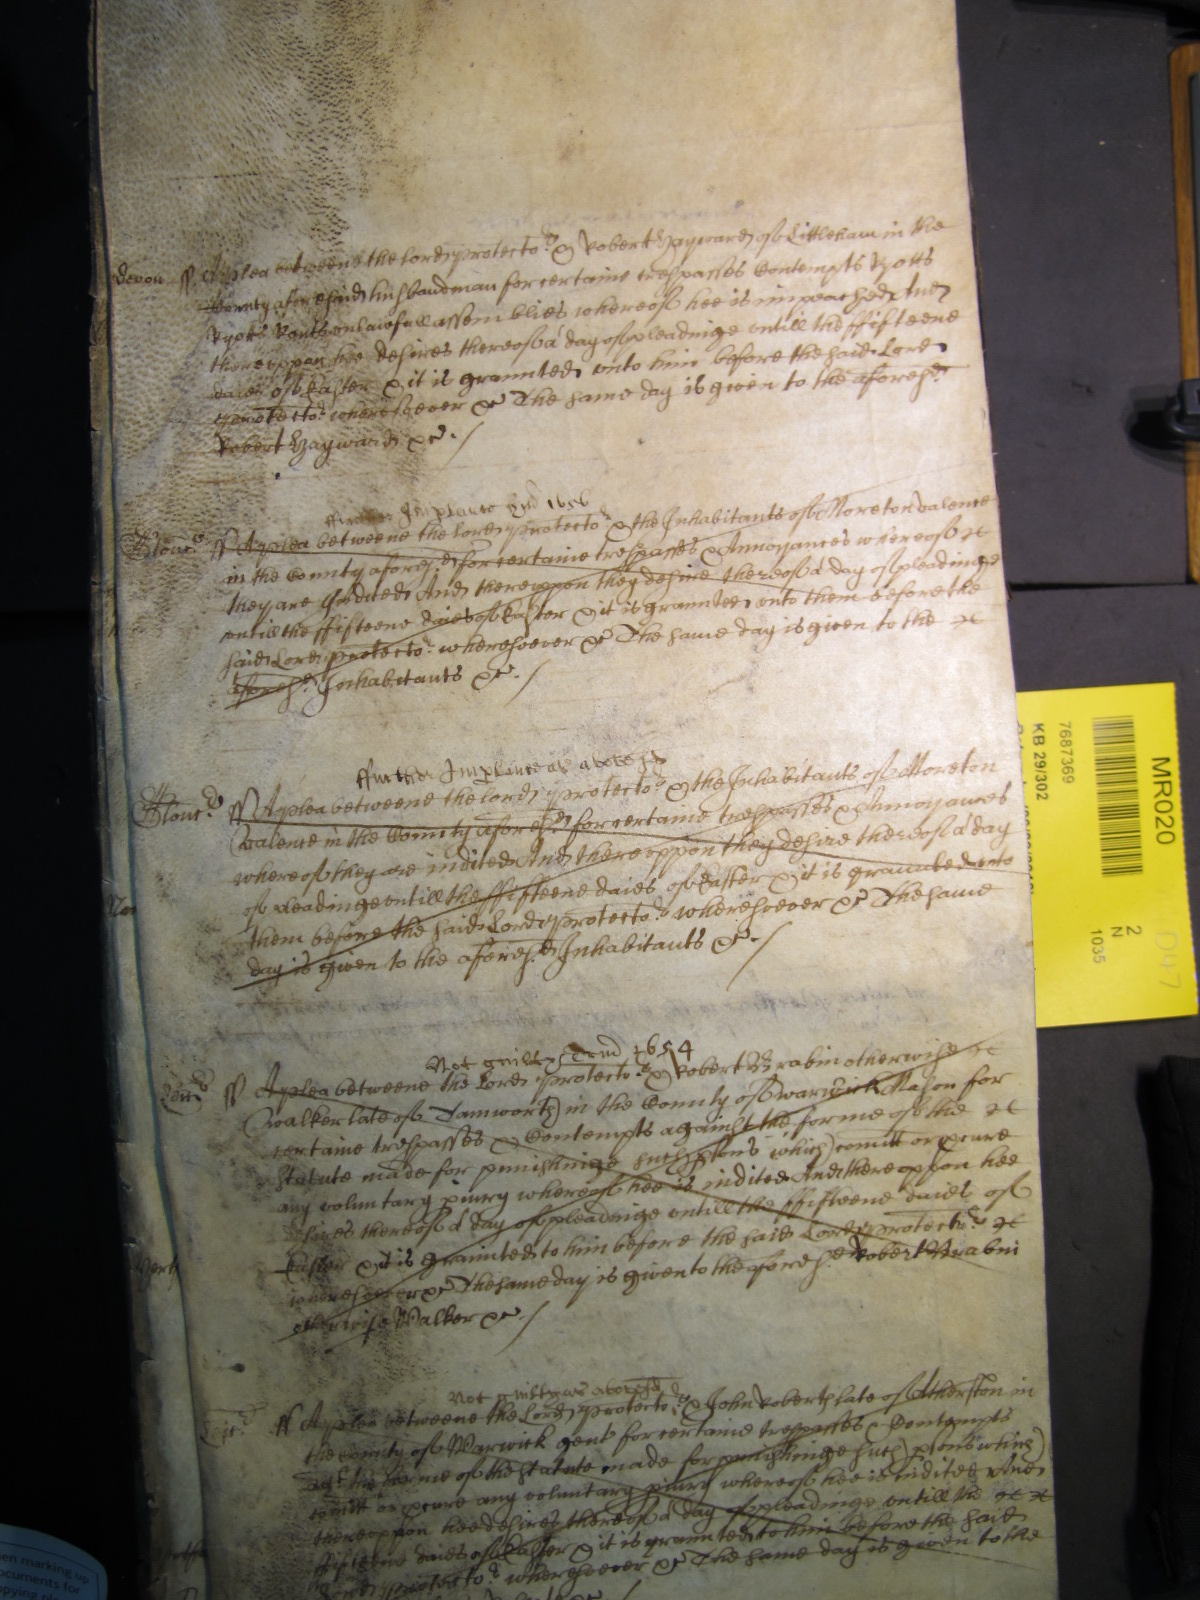 Devon ss A plea betweene the Lord Protector & Robert Hayward of Littleham in the
County aforesaid husbandman for certaine trespasses Contempts Riotts
Ryots Routs unlawfull assemblies whereof hee is impeached And
thereuppon hee desires thereof a day of pleadinge untill the ffifteene
daies of Easter & it is graunted unto him before the said Lord
Protector wheresoever &c The same day is given to the aforesd
Robert Hayward &c./
ffurther Imparlance 1656
Glouc ss A plea betweene the Lord Protector & the Inhabitants of Moreton Valence
in the County aforesd for certaine trespasses & Annoyances whereof
they are Indited And thereuppon they desire thereof a day of pleadinge
untill the ffifteene daies of Easter & it is graunted unto them before the
said Lord Protector wheresoever &c The same day is given to the
aforesd Inhabitants &c./
ffurther Imparlance as abovesd
Glouc ss A plea betweene the Lord Protector & the Inhabitants of Moreton
Valence in the County aforesd for certaine trespasses & Annoyances
whereof they are indited And thereuppon they desire thereof a day
of pleadinge untill the ffifteene daies of Easter & it is graunted unto
them before the said Lord Protector wheresoever &c The same
day is given to the aforesd Inhabitants &c./
Not guilty 1654
ss A plea betweene the Lord Protector & Robert Brabin otherwise
Walker late of Tamworth in the County of Warwick Mason for
certaine trespasses & Contempts against the forme of the
Statute made for punishinge such psons which comitt or pcure
any voluntary piury whereof hee is indited And thereuppon hee
desires thereof a day of pleadinge untill the ffifteene daies of
Easter & it is graunted to him before the said Lord Protector
wheresoever &c The same day is given to the aforesd Robert Brabin
otherwise Walker &c./
Not guilty as abovesd
ss A plea betweene the Lord Protector & John Roberts late of Atherston in
the County of Warwick gent for certaine trespasses & Contempts
agt the forme of the Statute made for punishinge such psons which
comitt or pcure any voluntary piury whereof hee is indited And
thereuppon hee desires thereof a day of pleadinge untill the
ffifteene daies of Easter & it is graunted to him before the said
Lord Protector wheresoever &c The same day is given to the
MR020
7687369
KB 29/302
2
N
1035
D47
en marking up
ocuments for